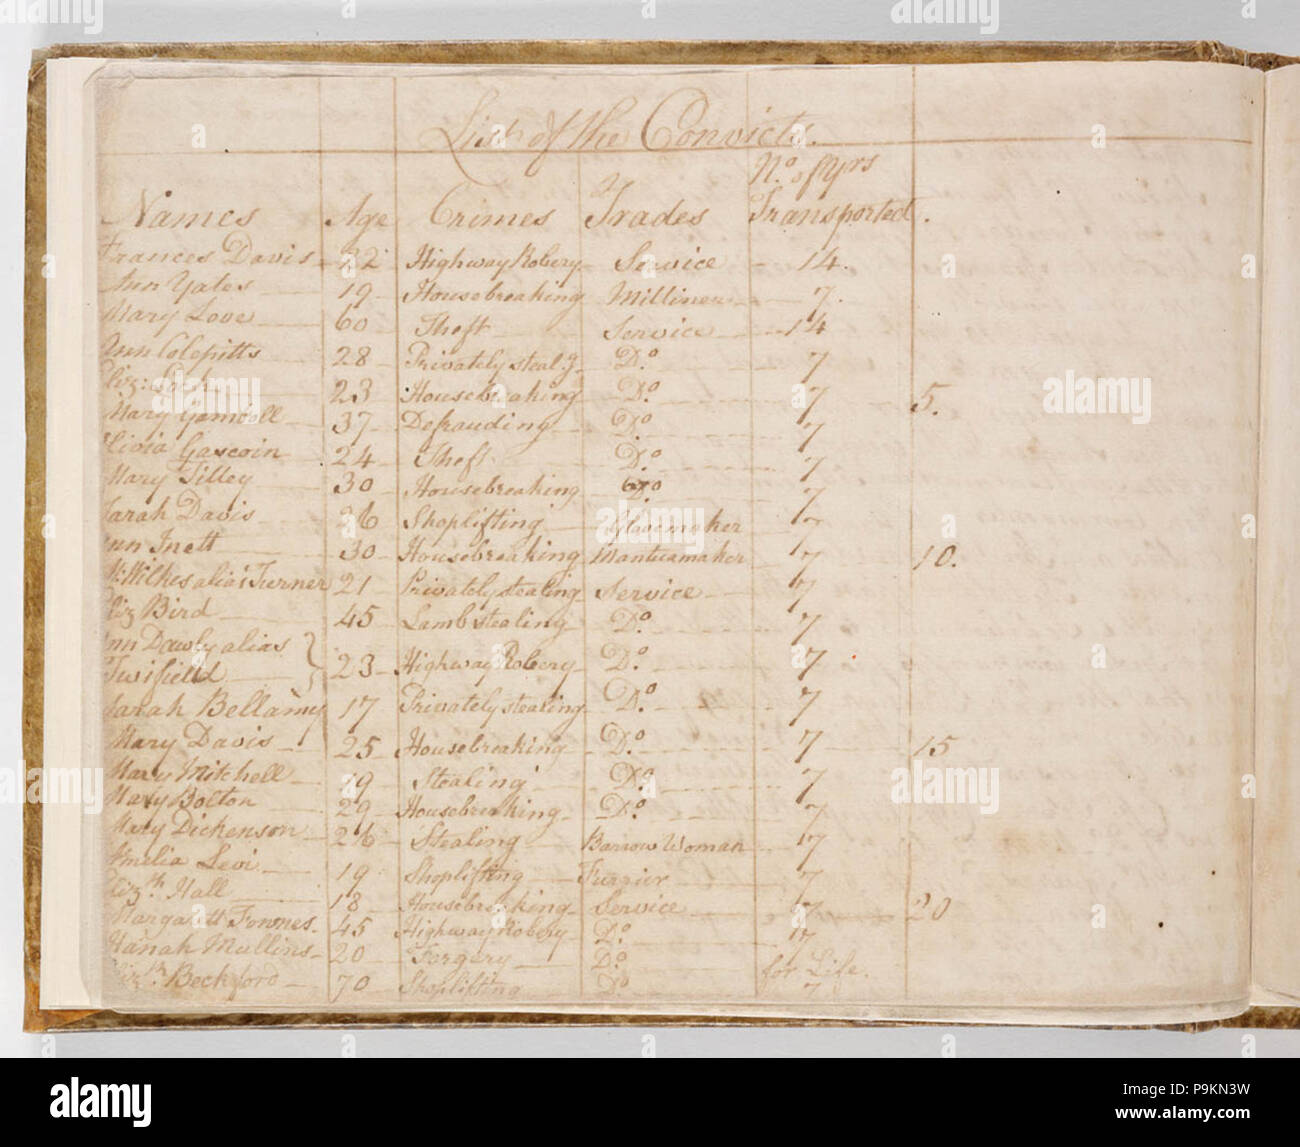 List of the Convicts.
Names Age Crimes Trades No. of Yrs Transported.
Frances Davis 22 Highway Robery Service 14.
Ann Yates 19 Housebreaking Milliner 7.
Mary Love 60 Theft Service 14
Ann Colepitts 28 Privately steal.g Do. 7
Eliz: Lock 23 Housebreaking Do. 7 5.
Mary Gamboll 37 Defrauding Do. 7
Olivia Gascoin 24 Theft Do. 7
Mary Tilley 30 Housebreaking Do 7
Sarah Davis 26 Shoplifting Glovemaker 7
Ann Inett 30 Housebreaking Mantuamaker 7 10.
M: Wilkes alias Turner 21 Privately stealing Service 7
Eliz Bird 45 Lamb stealing Do. 7
Ann Dawly alias
Twifield 23 Highway Robery Do. 7
Sarah Bellamy 17 Privately stealing Do. 7
Mary Davis 25 Housebreaking Do. 7 15
Mary Mitchell 19 Stealing Do. 7
Mary Bolton 29 Housebreaking Do. 7
Mary Dickenson 26 Stealing Barrow Woman 7
Amelia Levi 19 Shoplifting Furrier 7
Eliz.th Hall 18 Housebreaking Service 7 20
Margarett Fownes. 45 Highway Robery Do. 7
Hanah Mullins 20 Forgery Do for Life.
Eliz.th Beckford 70 Shoplifting Do 7
alamy
Image ID: P9KN3W
www.alamy.com